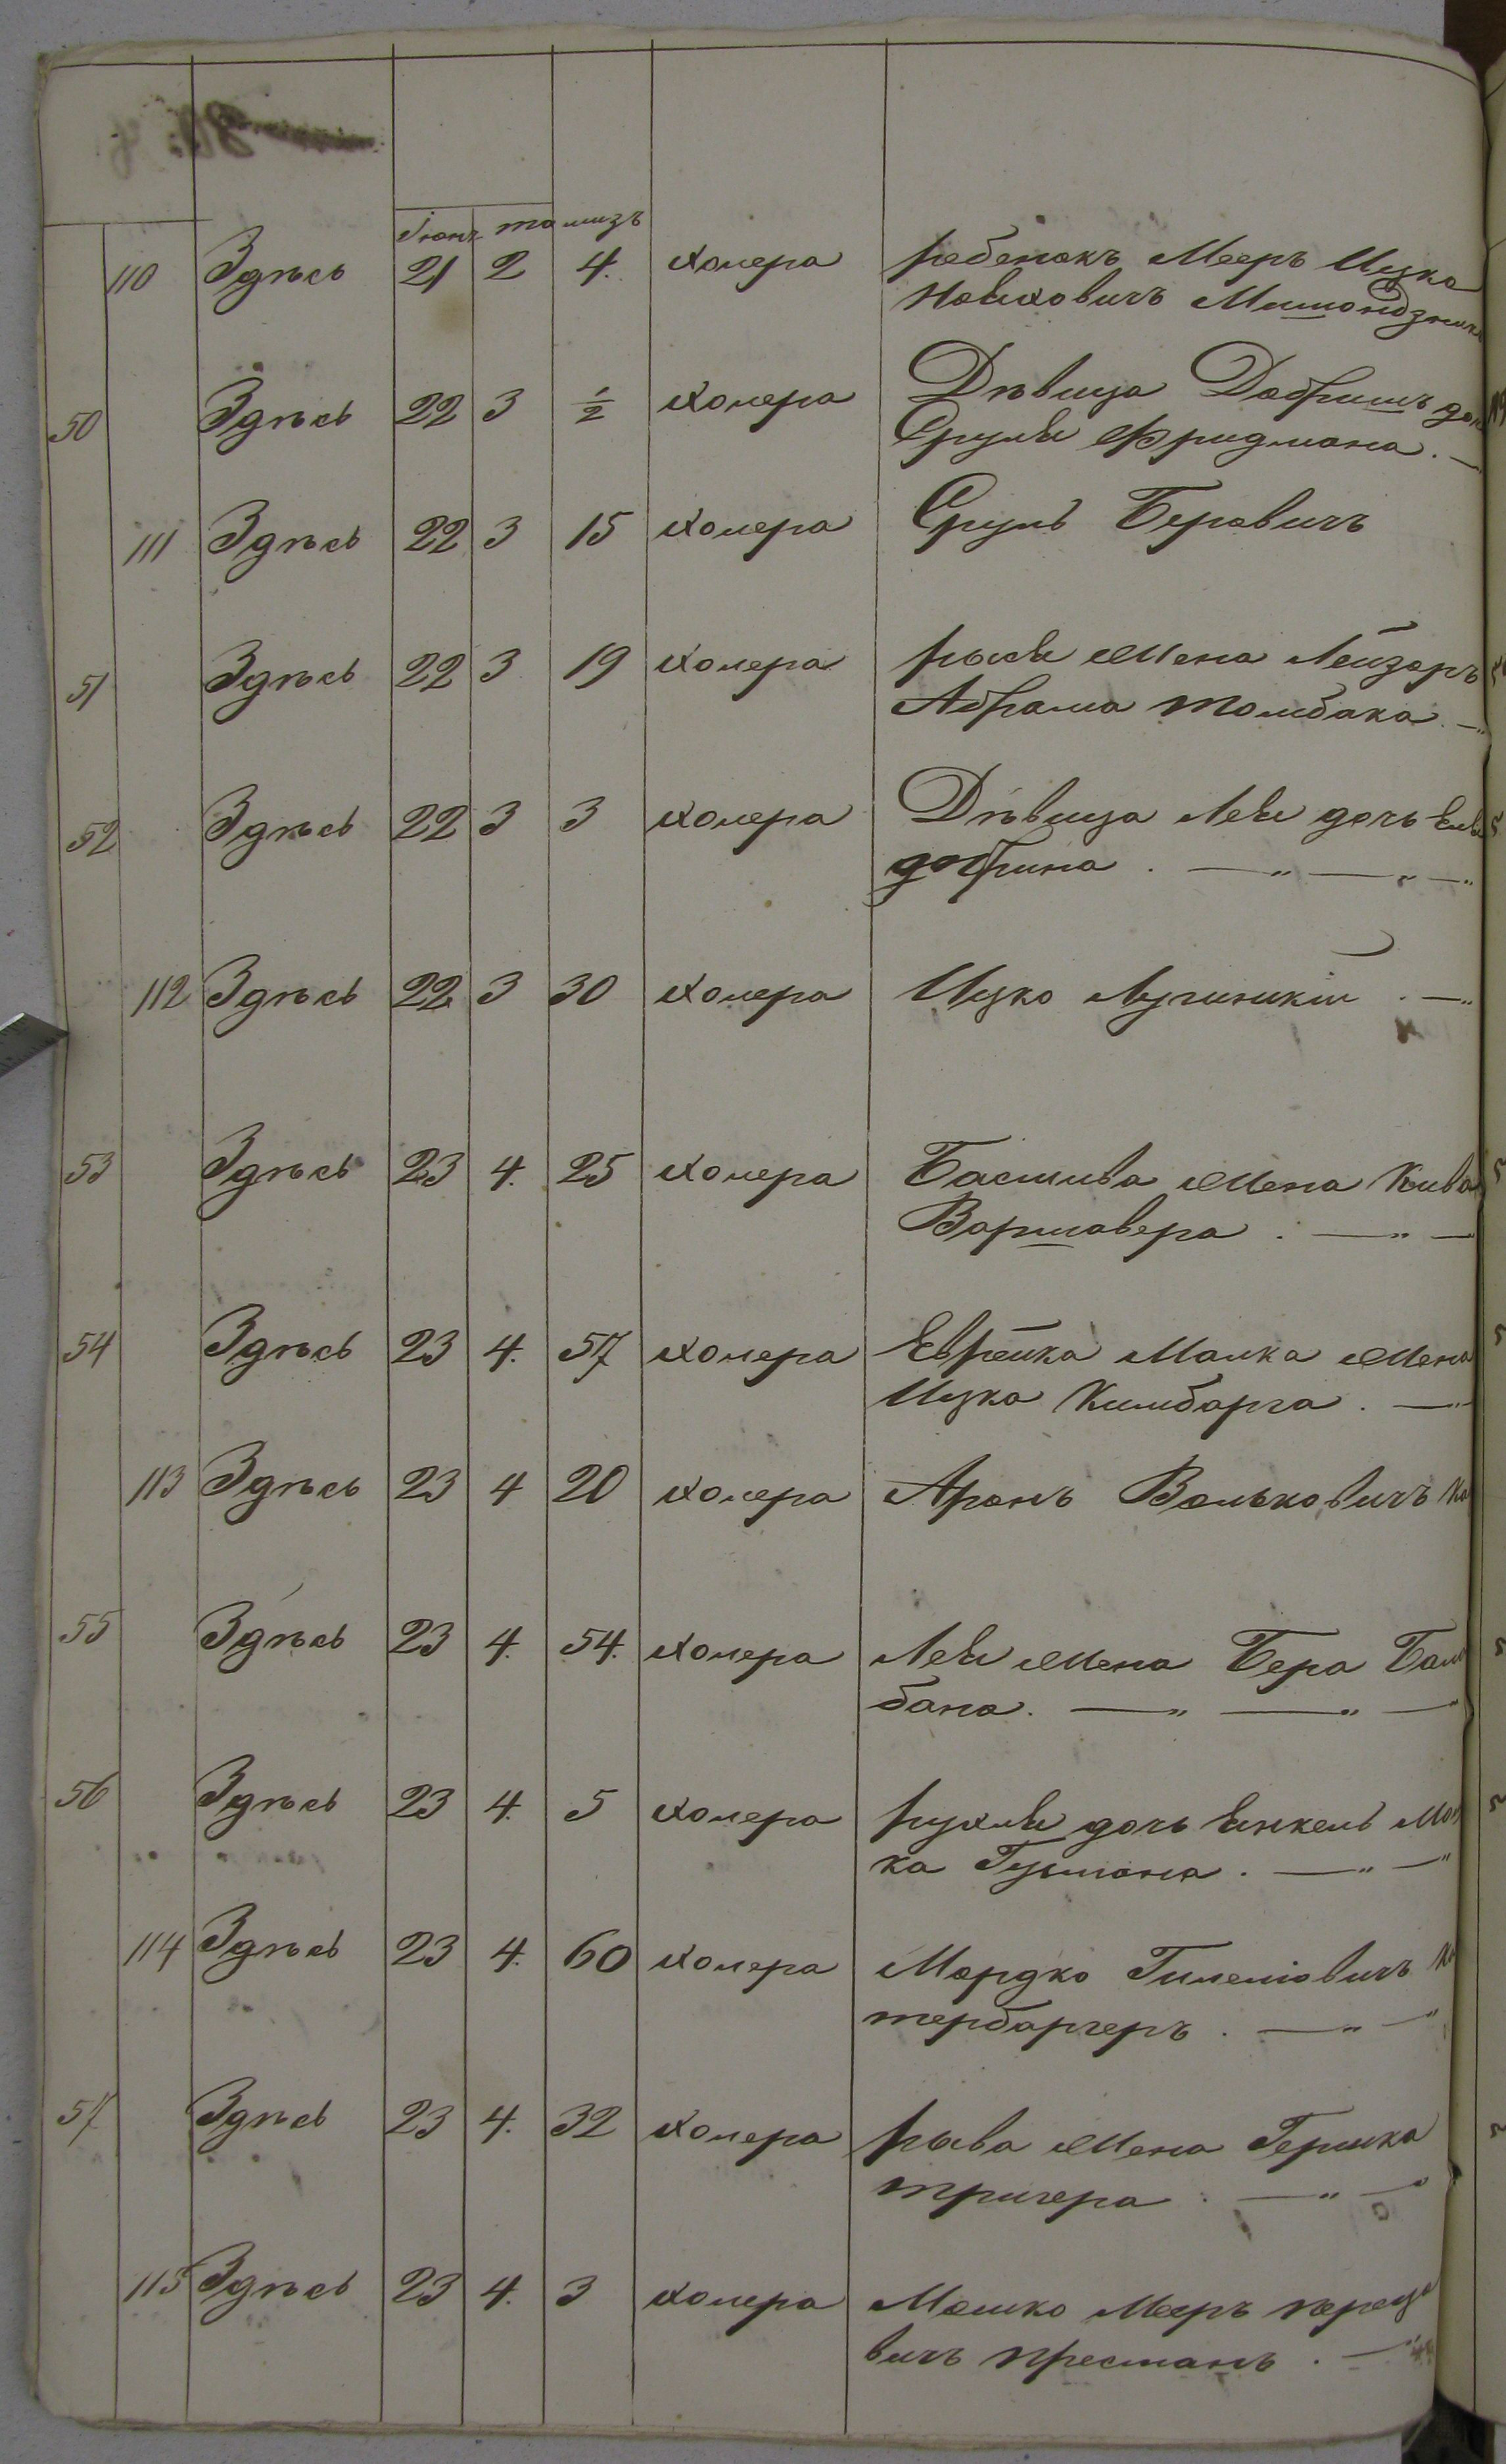 Іюнь тамизъ
110 Здѣсь 21 2 4. холера ребенокъ Мееръ Ицко
Новховичъ
50 Здѣсь 22 3 1/2 холера Дѣвица Добришъ доч
Сруля Фридмана. —
111 Здѣсь 22 3 15 холера Сруль Беровичъ
51 Здѣсь 22 3 19 холера рыся жена Лейзоръ
Абрама Томбака. —"
52 Здѣсь 22 3 3 холера Дѣвица Лея дочь
добрина. —"—"—"
112 Здѣсь 22 3 30 холера Ицко Лучинскій. —"
53 Здѣсь 23 4. 25 холера Басшива жена Кива
Варшавера. —"—
54 Здѣсь 23 4. 57 холера Еврейка Малка жена
Ицка Кимбарга. —"
113 Здѣсь 23 4 20 холера Аронъ Вольковичъ
55 Здѣсь 23 4. 54. холера Лея жена Бера Бала
бана. —"—"—"
56 Здѣсь 23 4. 5 холера рухля дочь Янкель Мош
ка Гузмана. —"—"
114 Здѣсь 23 4. 60 холера Мордко Гилелiовичъ
тербаргеръ. —"—"
57 Здѣсь 23 4. 32 холера рыва жена Гершка
тригера. —"—"
115 Здѣсь 23 4. 3 холера Мошко Мееръ переца
вичъ пресманъ. —"